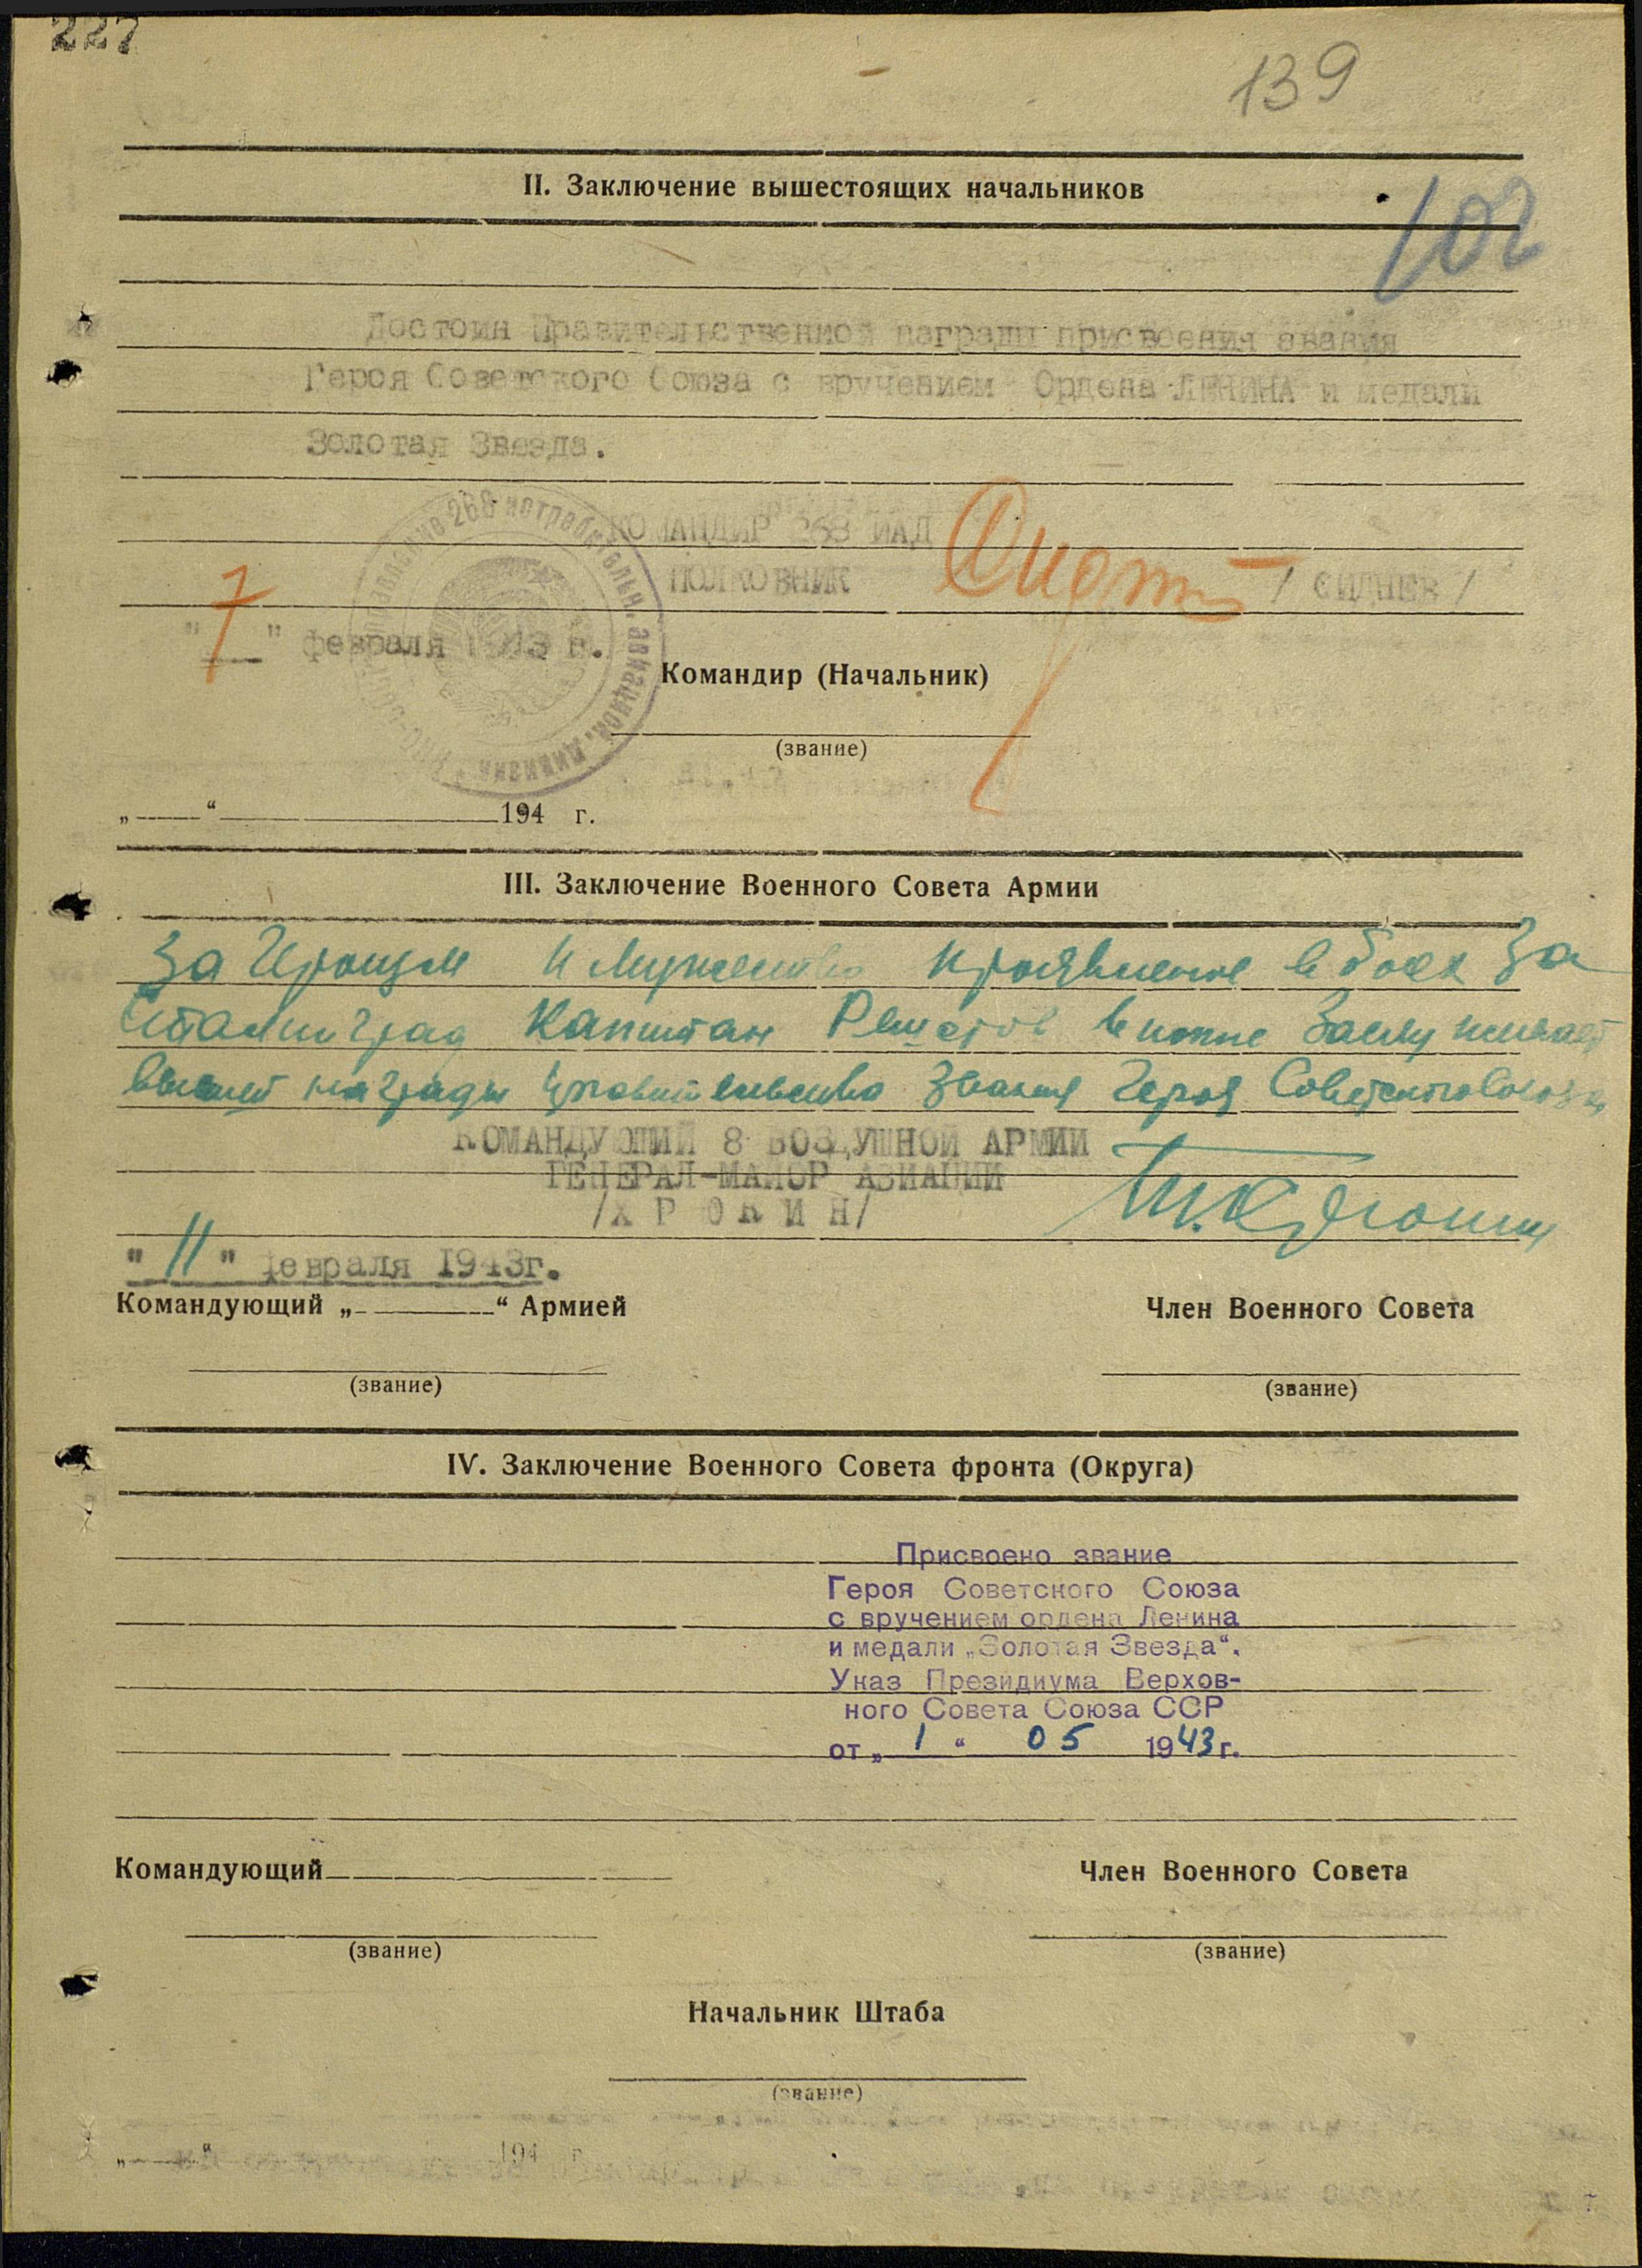 227
139
II. Заключение вышестоящих начальников
102
Достоин Правительственной награды присвоения звания
Героя Советского Союза с вручением Ордена ЛЕНИНА и медали
Золотая Звезда.
КОМАНДИР 268 ИАД
ПОЛКОВНИК / СИДНЕВ /
"7" февраля 1943 г.
Командир (Начальник)
(звание)
„ “ 194 г.
III. Заключение Военного Совета Армии
За Героизм и мужество проявленные в боях за
Сталинград Капитан Решетов вполне заслуживает
высшей награды правительства звания Героя Советского Союза
КОМАНДУЮЩИЙ 8 ВОЗДУШНОЙ АРМИИ
ГЕНЕРАЛ-МАЙОР АВИАЦИИ
/ХРЮКИН/
"11" февраля 1943г.
Командующий „ “ Армией Член Военного Совета
(звание) (звание)
IV. Заключение Военного Совета фронта (Округа)
Присвоено звание
Героя Советского Союза
с вручением ордена Ленина
и медали „Золотая Звезда“.
Указ Президиума Верхов-
ного Совета Союза ССР
от „ 1 “ 05 1943 г.
Командующий Член Военного Совета
(звание) (звание)
Начальник Штаба
(звание)
„ “ 194 г.